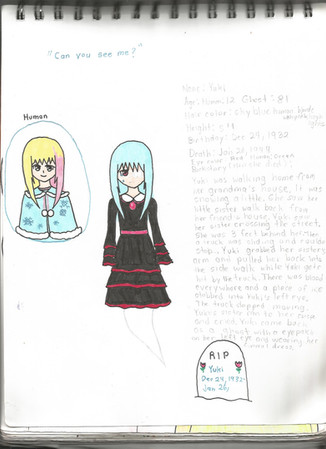 "Can you see me?"
Name: Yuki
Age: Human: 12 Ghost: 81
Human
Hair color: Sky blue human: blonde
Height: 5'1
Birthday: Dec 24, 1932
Death: Jan 26,
Yuki was walking home from
her grandma's house, it was
snowing a little. She saw her
little sister walk back from
her friend's house. Yuki saw
her sister crossing the street.
She was 3 feet behind her. Then
a truck was sliding and couldn't
stop. Yuki grabed her sisters
arm and pulled her back into
the side walk while Yuki got
hit by the truck. There was blood
everywhere and a piece of
Yuki's left eye.
The truck stopped moving.
Yuki's sister ran to her
and cried. Yuki came back
as a ghost with a eyepatch
on her left eye and wearing her
dress.
RIP
Yuki
Dec 24, 1932-
Jan 26,